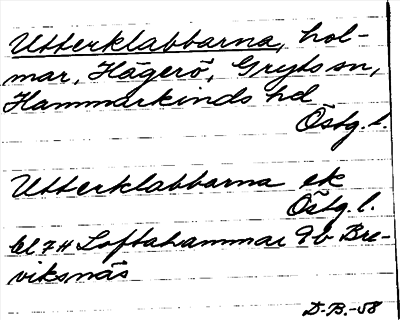 Utterklabbarna, hol-
mar, Hägerö, Gryts sn,
Hammarkinds hd
Östg. l.
Utterklabbarna ek
Östg. l.
bl 7H Loftahammar 9b Bre-
viksnäs
D.-B.-58